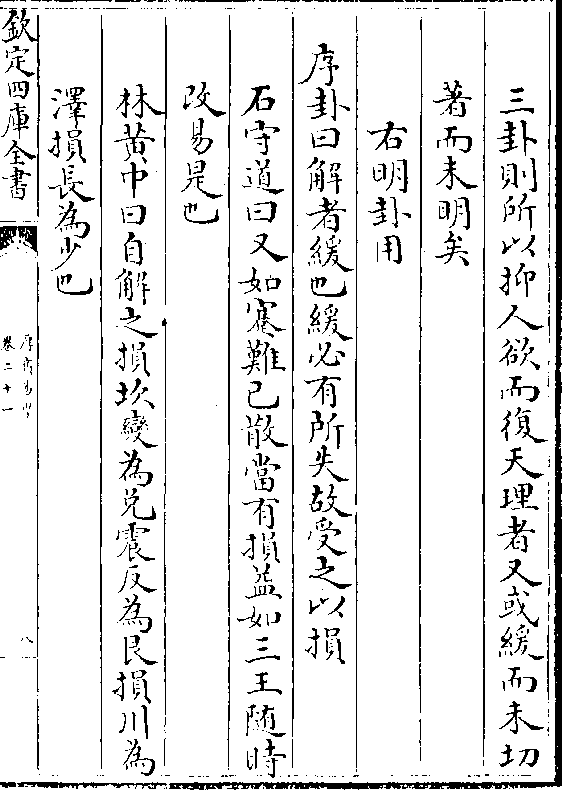 三卦則所以抑人欲而復天理者又或緩而未切
著而未明矣
右明卦用
序卦曰解者緩也緩必有所失故受之以損
石守道曰又如蹇難已散當有損益如三王随時
改易是也
林黄中曰自解之損坎變為兌震反為艮損川為
澤損長為少也
欽定四庫全書
卷二十一
八